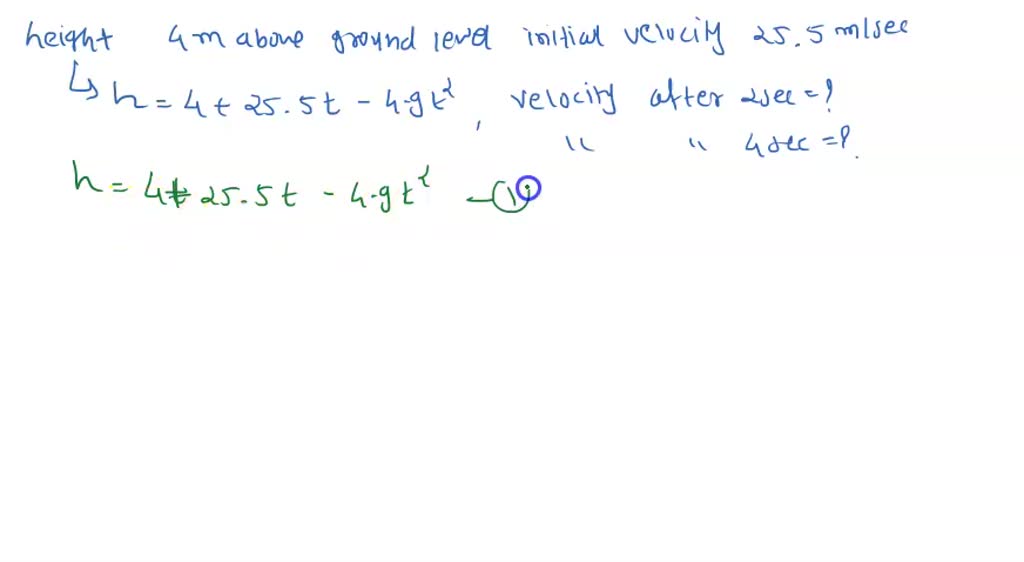 height 4m above ground level initial velocity 25.5 m/sec
↳ h = 4 + 25.5t - 4.9t², velocity after 2sec = ?
" " 4sec = ?.
h = 4 + 25.5t - 4.9t² —(1)